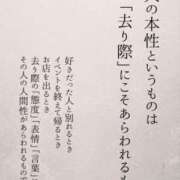 の本性というものは
「去り際」にこそあらわれるも
好きだった人と別れるとき
イベントを終えて帰るとき
お店を出るとき
去り際の「態度」「表情」「言葉」
その人の人間性があらわれるもので